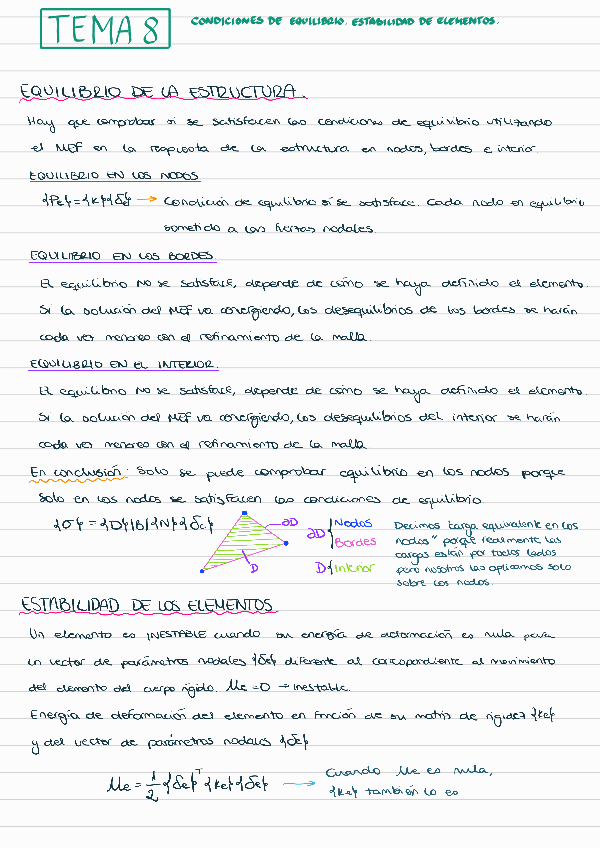 TEMA 8 CONDICIONES DE EQUILIBRIO. ESTABILIDAD DE ELEMENTOS.
EQUILIBRIO DE LA ESTRUCTURA.
Hay que comprobar si se satisfacen las condiciones de equilibrio utilizando
el MEF en la respuesta de la estructura en nodos, bordes e interior.
EQUILIBRIO EN LOS NODOS
{Pe}={Ke}{δe} → Condición de equilibrio si se satisface. Cada nodo en equilibrio
sometido a las fuerzas nodales.
EQUILIBRIO EN LOS BORDES
El equilibrio NO se satisface, depende de cómo se haya definido el elemento.
Si la solución del MEF va convergiendo, los desequilibrios de los bordes se harán
cada vez menores con el refinamiento de la malla.
EQUILIBRIO EN EL INTERIOR.
El equilibrio NO se satisface, depende de cómo se haya definido el elemento.
Si la solución del MEF va convergiendo, los desequilibrios del interior se harán
cada vez menores con el refinamiento de la malla
En conclusión: Solo se puede comprobar equilibrio en los nodos porque
solo en los nodos se satisfacen las condiciones de equilibrio
{σ} = {D}{B}{N}{δe}
∂D
D
∂D { Nodos
Bordes
D { Interior
Decimos "carga equivalente en los
nodos" porque realmente las
cargas están por todos lados
pero nosotros las aplicamos solo
sobre los nodos.
ESTABILIDAD DE LOS ELEMENTOS
Un elemento es INESTABLE cuando su energía de deformación es nula para
un vector de parámetros nodales {δe} diferente al correspondiente al movimiento
del elemento del cuerpo rígido. Ue = 0 → Inestable.
Energía de deformación del elemento en función de su matriz de rigidez {Ke}
y del vector de parámetros nodales {δe}
Ue = 1/2 {δe}ᵀ {Ke} {δe} → Cuando Ue es nula,
{Ke} también lo es